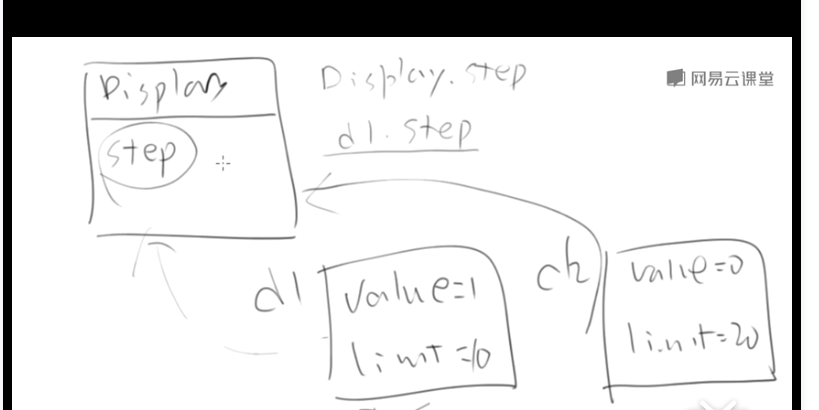 Display
step
Display.step
d1.step
网易云课堂
d1
value=1
limit=10
d2
value=0
limit=20